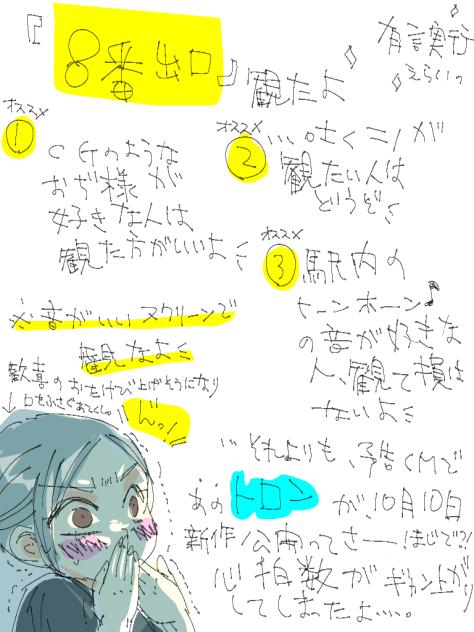 『8番出口』観たよ
有言実行
えらいっ
オススメ
①
CGのような
おぢ様が
好きな人は
観た方がいいよ
オススメ
②
…吐くニノが
観たい人は
どうぞ
オススメ
③
駅内の
ピーンポーン♪
の音が好きな
人、観て損は
ないよ
※音がいいスクリーンで
観なよ
歓喜のおたけび上げそうになり
↓口をふさぐあてくし。
どっ!
…それよりも、予告CMで
あのトロンが、10月10日
新作公開ってさーまじで?!
心拍数がギャン上がり
してしまったよ…。